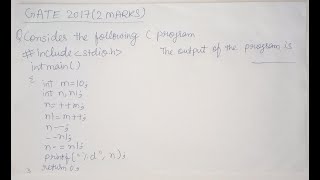 GATE 2017 (2 MARKS)
Q Consider the following C program
# include <stdio.h> The output of the program is
int main()
{
int m=10;
int n, n1;
n = ++m;
n1 = m++;
n--;
--n1;
n - = n1;
printf("%d", n);
return 0;
}